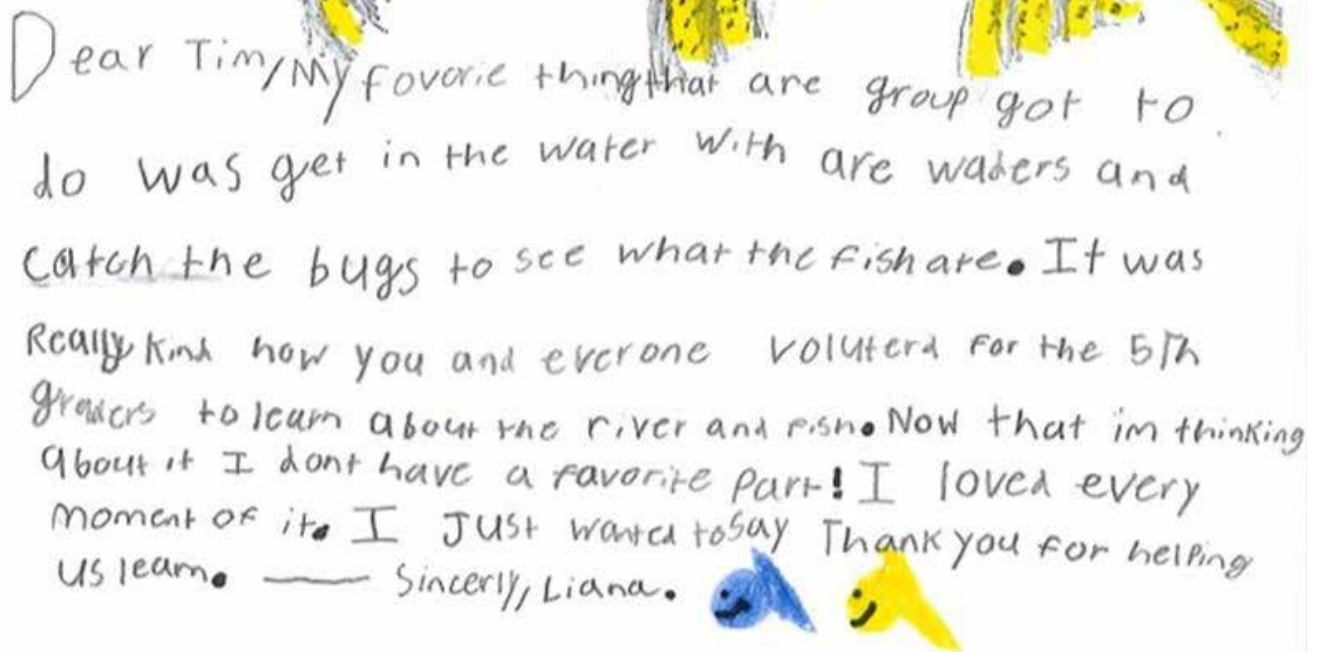 Dear Tim, My fovorie thing that are group got to
do was get in the water with are waders and
catch the bugs to see what the fish ate. It was
Really kind how you and everone voluterd for the 5th
graders to learn about the river and fish. Now that im thinking
about it I dont have a favorite part! I loved every
moment of it. I Just wanted to say Thank you for helping
us learn. —— Sincerly, Liana.